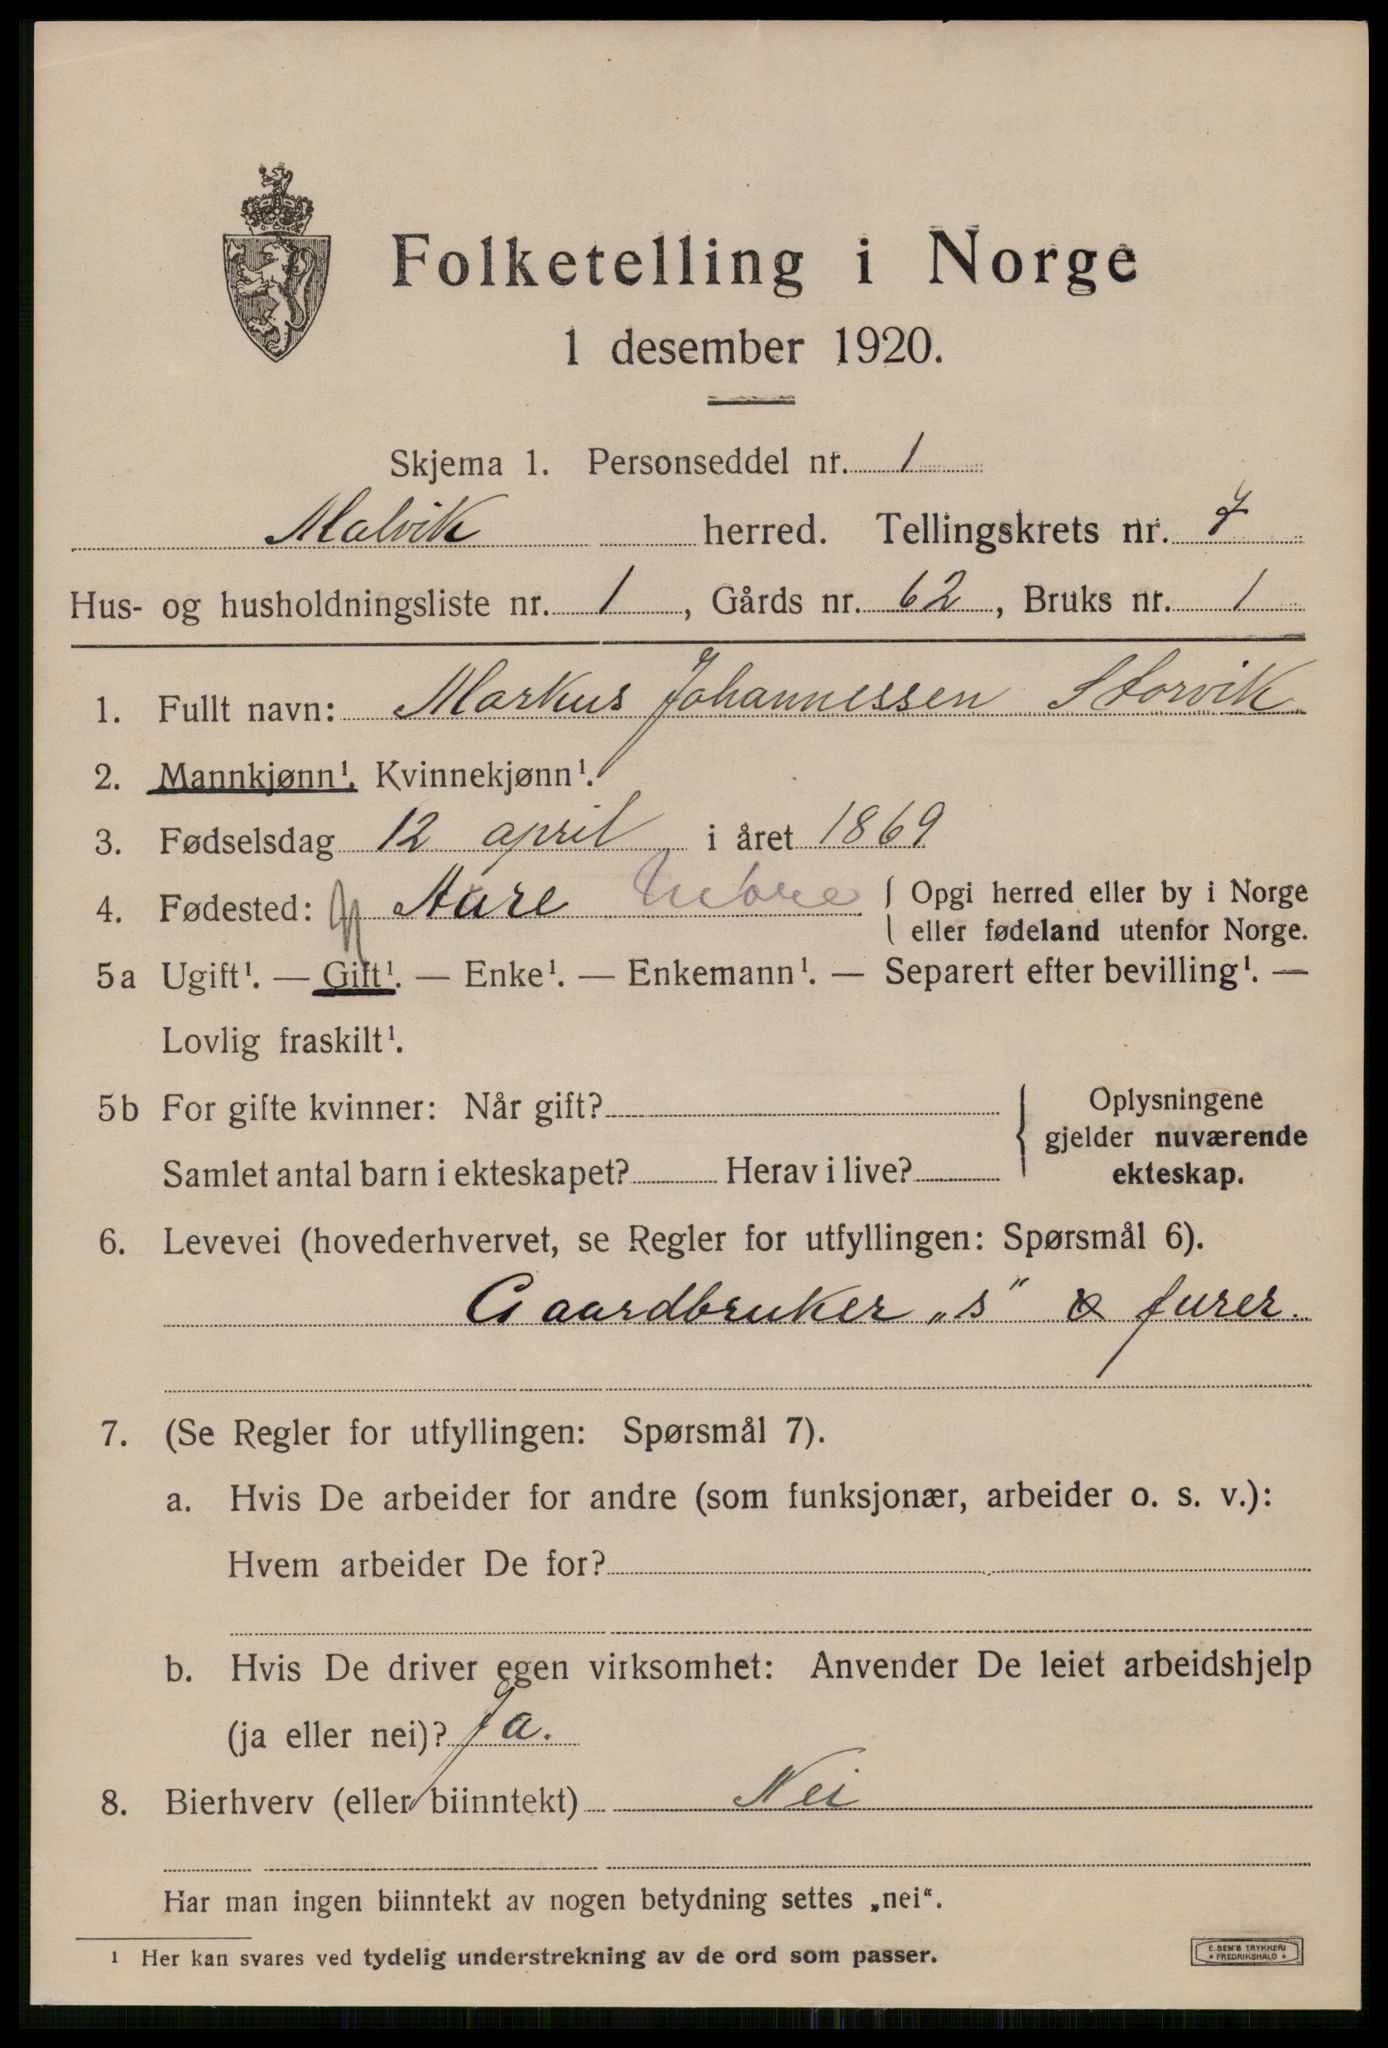 Folketelling i Norge
1 desember 1920.
Skjema 1. Personseddel nr. 1
Malvik herred. Tellingskrets nr. 7
Hus- og husholdningsliste nr. 1, Gårds nr. 62, Bruks nr. 1
1. Fullt navn: Markus Johannessen Storvik
2. Mannkjønn¹. Kvinnekjønn¹.
3. Fødselsdag 12 april i året 1869
4. Fødested: Aure Møre { Opgi herred eller by i Norge
eller fødeland utenfor Norge.
5a Ugift¹. — Gift¹. — Enke¹. — Enkemann¹. — Separert efter bevilling¹. —
Lovlig fraskilt¹.
5b For gifte kvinner: Når gift? } Oplysningene
gjelder nuværende
Samlet antal barn i ekteskapet? Herav i live? ekteskap.
6. Levevei (hovederhvervet, se Regler for utfyllingen: Spørsmål 6).
Gaardbruker „s“ & furer.
7. (Se Regler for utfyllingen: Spørsmål 7).
a. Hvis De arbeider for andre (som funksjonær, arbeider o. s. v.):
Hvem arbeider De for?
b. Hvis De driver egen virksomhet: Anvender De leiet arbeidshjelp
(ja eller nei)? Ja.
8. Bierhverv (eller biinntekt) Nei
Har man ingen biinntekt av nogen betydning settes „nei“.
¹ Her kan svares ved tydelig understrekning av de ord som passer.
E. SEM'S TRYKKERI
• FREDRIKSHALD •